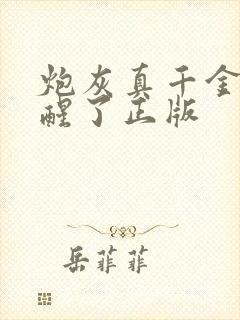 炮灰真千金
醒了正版
岳菲菲